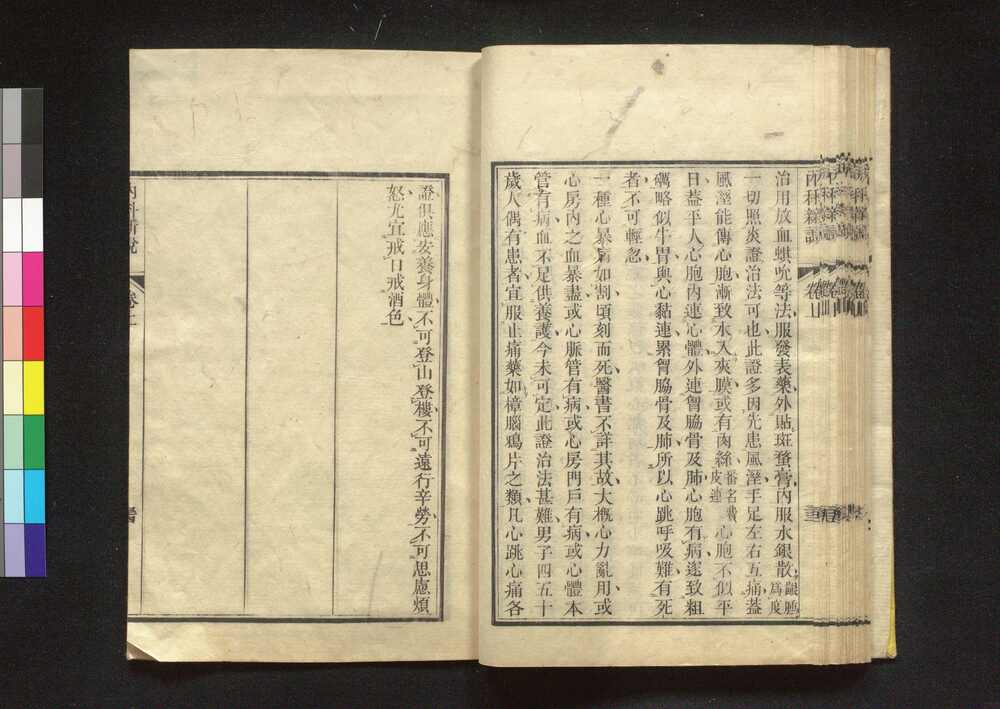 治用放血蜞吮等法服發表藥外貼斑蝥膏內服水銀散齦腫為度
一切照炎證治法可也此證多因先患風溼手足左右互痛葢
風溼能傳心胞漸致水入夾膜或有肉絲番名織皮連心胞不似平
日葢平人心胞內連心體外連胷脇骨及肺心胞有病遂致粗
礪略似牛胃與心黏連累胷脇骨及肺所以心跳呼吸難有死
者不可輕忽
一種心暴痛如割頃刻而死醫書不詳其故大概心力亂用或
心房內之血暴盡或心脈管有病或心房門戶有病或心體本
管有病血不足供養護今未可定此證治法甚難男子四五十
歲人偶有患者宜服止痛藥如樟腦鴉片之類凡心跳心痛各
證俱應安養身體不可登山登樓不可遠行辛勞不可思慮煩
怒尤宜戒口戒酒色
內科新說
卷上